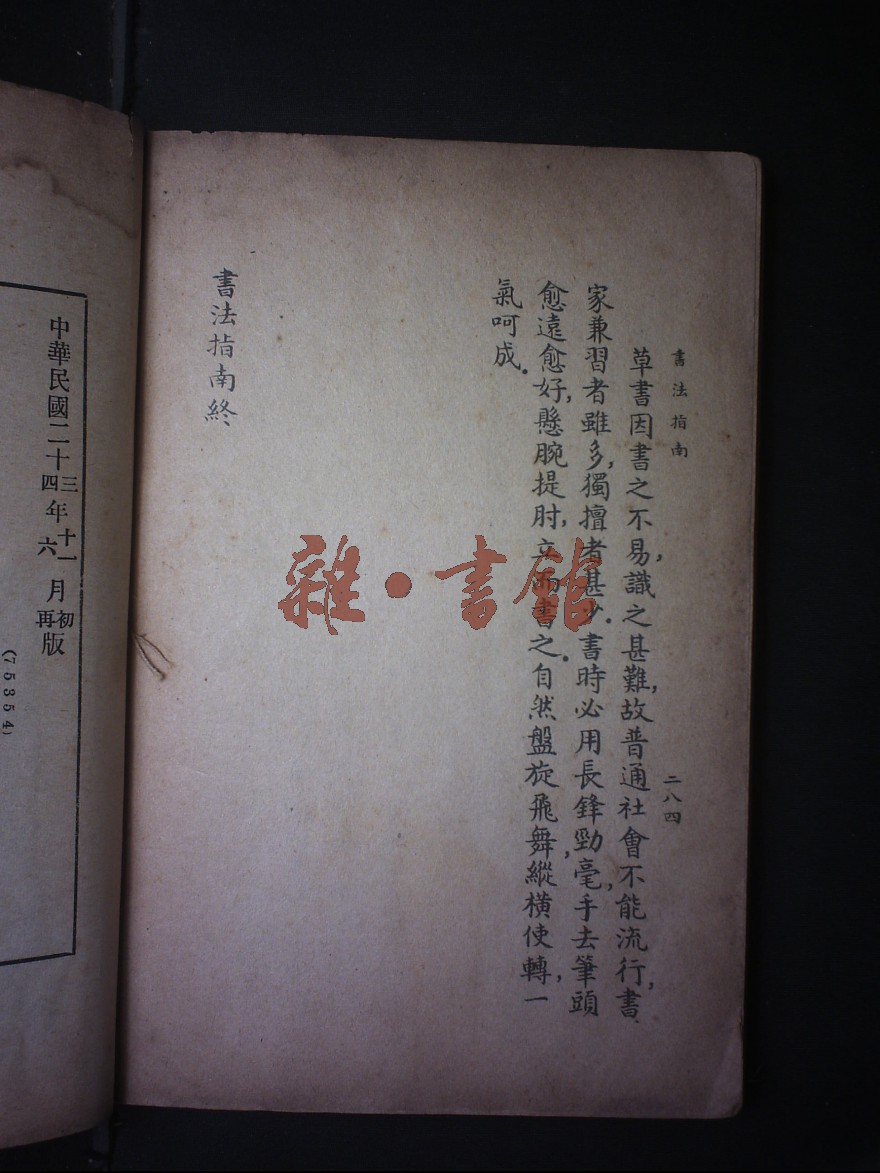 書法指南
二八四
草書因書之不易，識之甚難，故普通社會不能流行，書
家兼習者雖多，獨擅者甚少。書時必用長鋒勁毫，手去筆頭
愈遠愈好，懸腕提肘，立而書之。自然盤旋飛舞，縱橫使轉，一
氣呵成。
書法指南終
雜·書館
中華民國二十三年十一月初版
四六再
(75354)